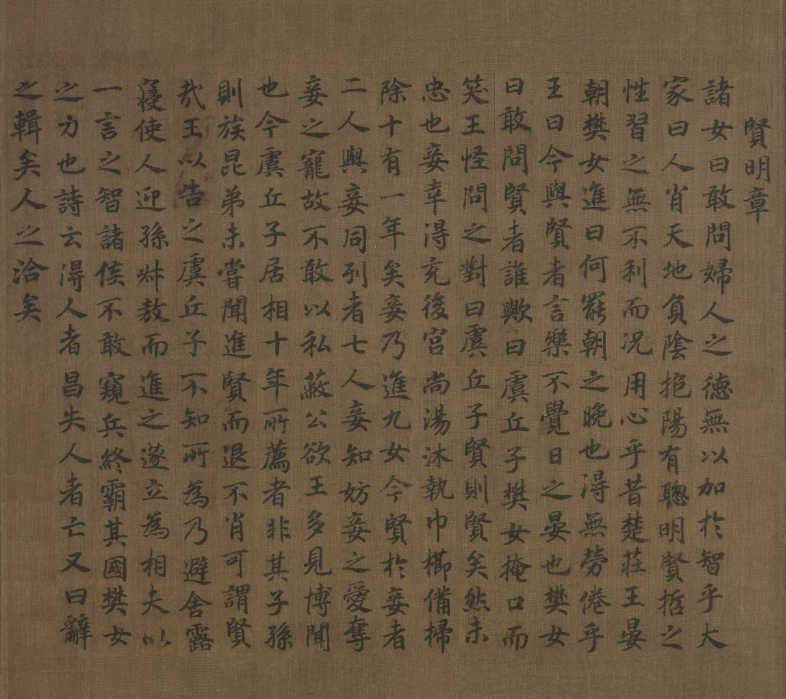 賢明章
諸女曰敢問婦人之德無以加於智乎大
家曰人肖天地負陰抱陽有聰明賢哲之
性習之無不利而况用心乎昔楚莊王晏
朝樊女進曰何罷朝之晚也得無勞倦乎
王曰今與賢者言樂不覺日之晏也樊女
曰敢問賢者誰歟曰虞丘子樊女掩口而
笑王怪問之對曰虞丘子賢則賢矣然未
忠也妾幸得充後宮尚湯沐執巾櫛備掃
除十有一年矣妾乃進九女今賢於妾者
二人與妾同列者七人妾知妨妾之愛奪
妾之寵故不敢以私蔽公欲王多見博聞
也今虞丘子居相十年所薦者非其子孫
則族昆弟未嘗聞進賢而退不肖可謂賢
㢤王以告之虞丘子不知所為乃避舍露
寑使人迎孫叔敖而進之遂立為相夫以
一言之智諸侯不敢窺兵終霸其國樊女
之力也詩云得人者昌失人者亡又曰辭
之輯矣人之洽矣